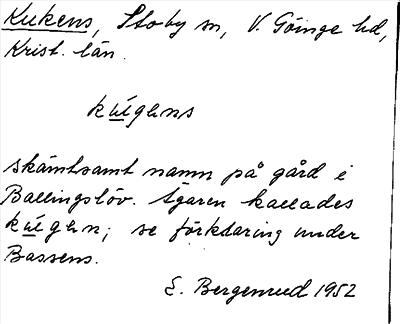 Kukens, Stoby sn, V. Göinge hd,
Krist. län.
kúgens
skämtsamt namn på gård i
Ballingslöv. Ägaren kallades
kúgen; se förklaring under
Bassens.
E. Bergenrud 1952